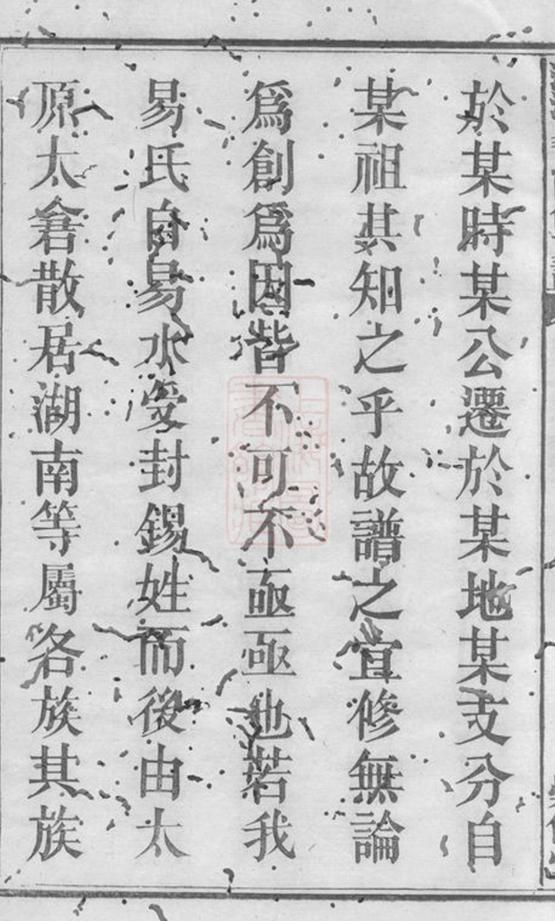 於某時某公遷於某地某支分自
某祖其知之乎故譜之宜修無論
爲創爲因皆不可不亟亟也若我
易氏自易水受封錫姓而後由太
原太倉散居湖南等屬各族其族